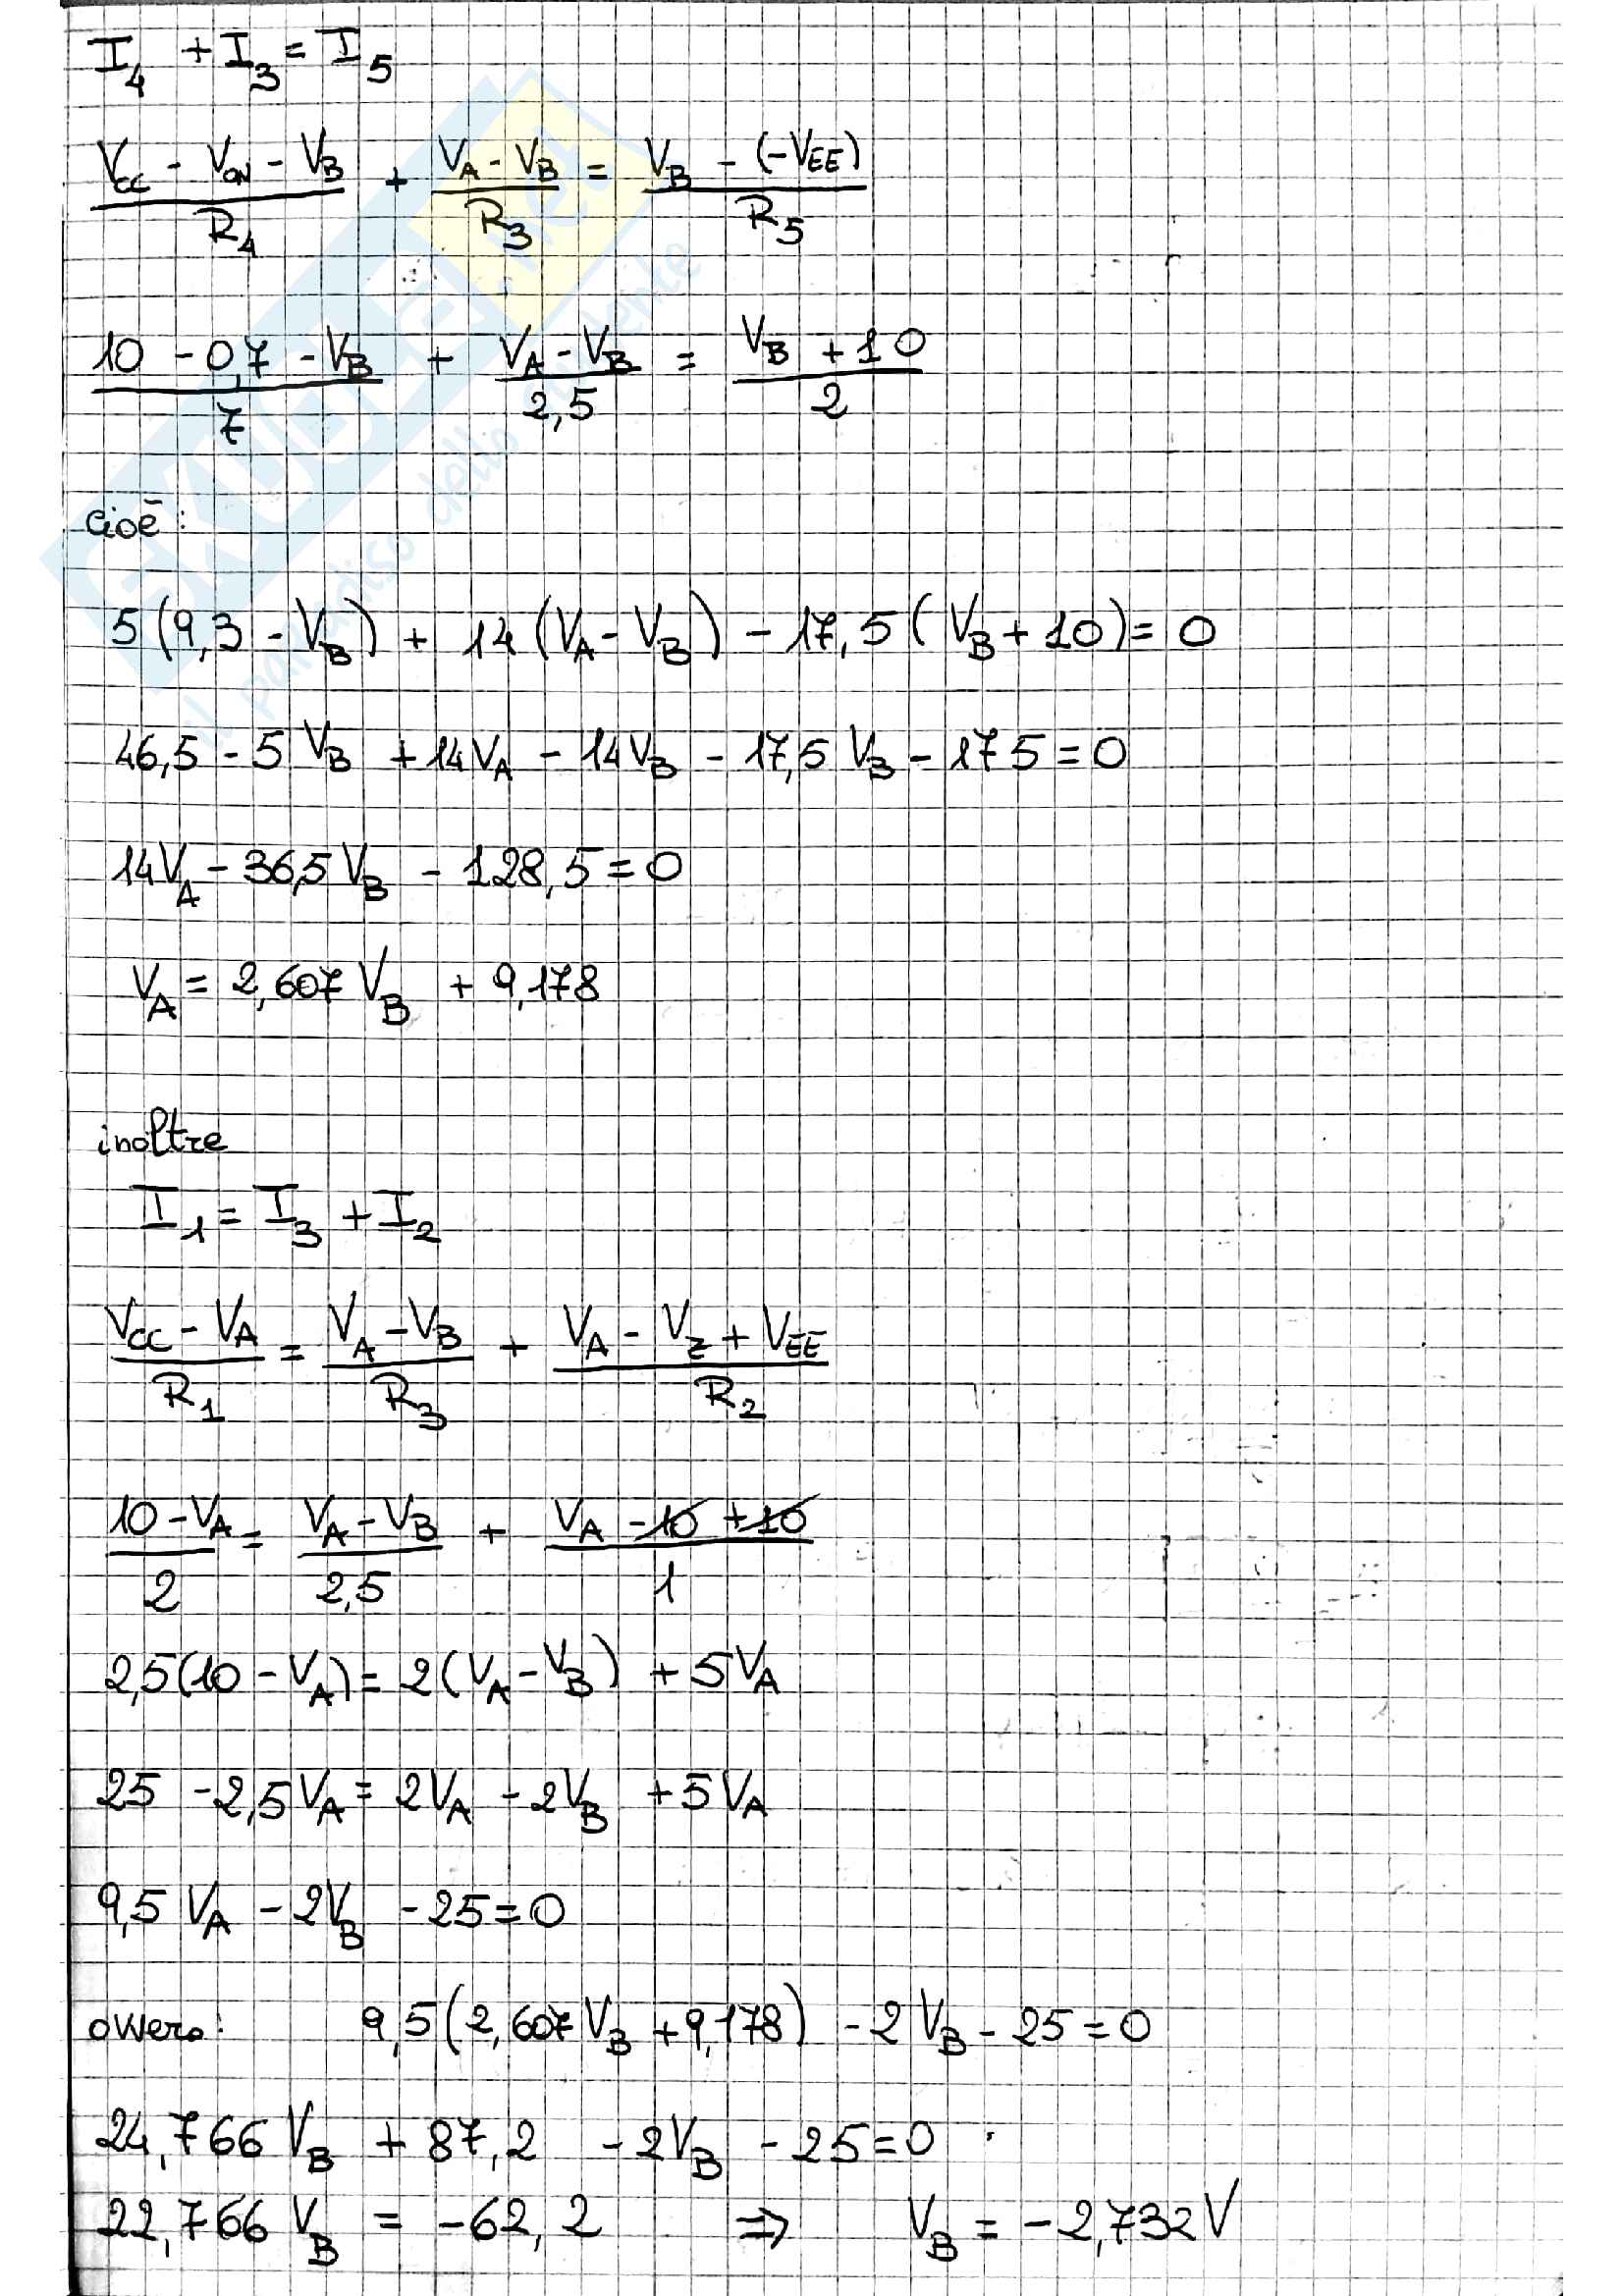 I₄ + I₃ = I₅
(V_CC - V_ON - V_B)/R₄ + (V_A - V_B)/R₃ = (V_B - (-V_EE))/R₅
(10 - 0,7 - V_B)/7 + (V_A - V_B)/2,5 = (V_B + 10)/2
cioè:
5(9,3 - V_B) + 14(V_A - V_B) - 17,5(V_B + 10) = 0
46,5 - 5V_B + 14V_A - 14V_B - 17,5V_B - 175 = 0
14V_A - 36,5V_B - 128,5 = 0
V_A = 2,607V_B + 9,178
inoltre
I₁ = I₃ + I₂
(V_CC - V_A)/R₁ = (V_A - V_B)/R₃ + (V_A - V_Z + V_EE)/R₂
(10 - V_A)/2 = (V_A - V_B)/2,5 + (V_A - 10 + 10)/1
2,5(10 - V_A) = 2(V_A - V_B) + 5V_A
25 - 2,5V_A = 2V_A - 2V_B + 5V_A
9,5V_A - 2V_B - 25 = 0
ovvero: 9,5(2,607V_B + 9,178) - 2V_B - 25 = 0
24,766V_B + 87,2 - 2V_B - 25 = 0
22,766V_B = -62,2 ⇒ V_B = -2,732V
SKUOLA.net
il paradiso dello studente